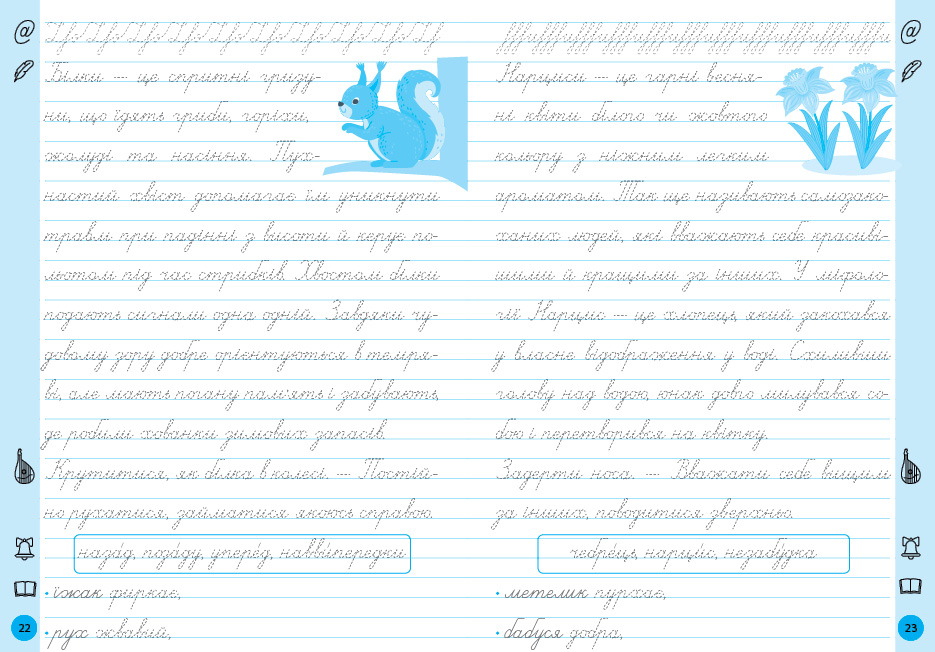 Білки — це спритні гризу-
ни, що їдять гриби, горіхи,
жолуді та насіння. Пух-
настий хвіст допомагає їм уникнути
травм при падінні з висоти й керує по-
льотом під час стрибків. Хвостом білки
подають сигнали одна одній. Завдяки чу-
довому зору добре орієнтуються в темря-
ві, але мають погану пам'ять і забувають,
де робили хованки зимових запасів.
Крутитися, як білка в колесі. — Постій-
но рухатися, займатися якоюсь справою.
наза́д, поза́ду, упере́д, наввипередки
• їжак фиркає,
• рух жвавий,
22
Нарциси — це гарні весня-
ні квіти білого чи жовтого
кольору з ніжним легким
ароматом. Так ще називають самозако-
ханих людей, які вважають себе красиві-
шими й кращими за інших. У міфоло-
гії Нарцис — це хлопець, який закохався
у власне відображення у воді. Схиливши
голову над водою, юнак довго милувався со-
бою і перетворився на квітку.
Задерти носа. — Вважати себе вищим
за інших, поводитися зверхньо.
чебре́ць, нарци́с, незабу́дка
• метелик пурхає,
• бабуся добра,
23